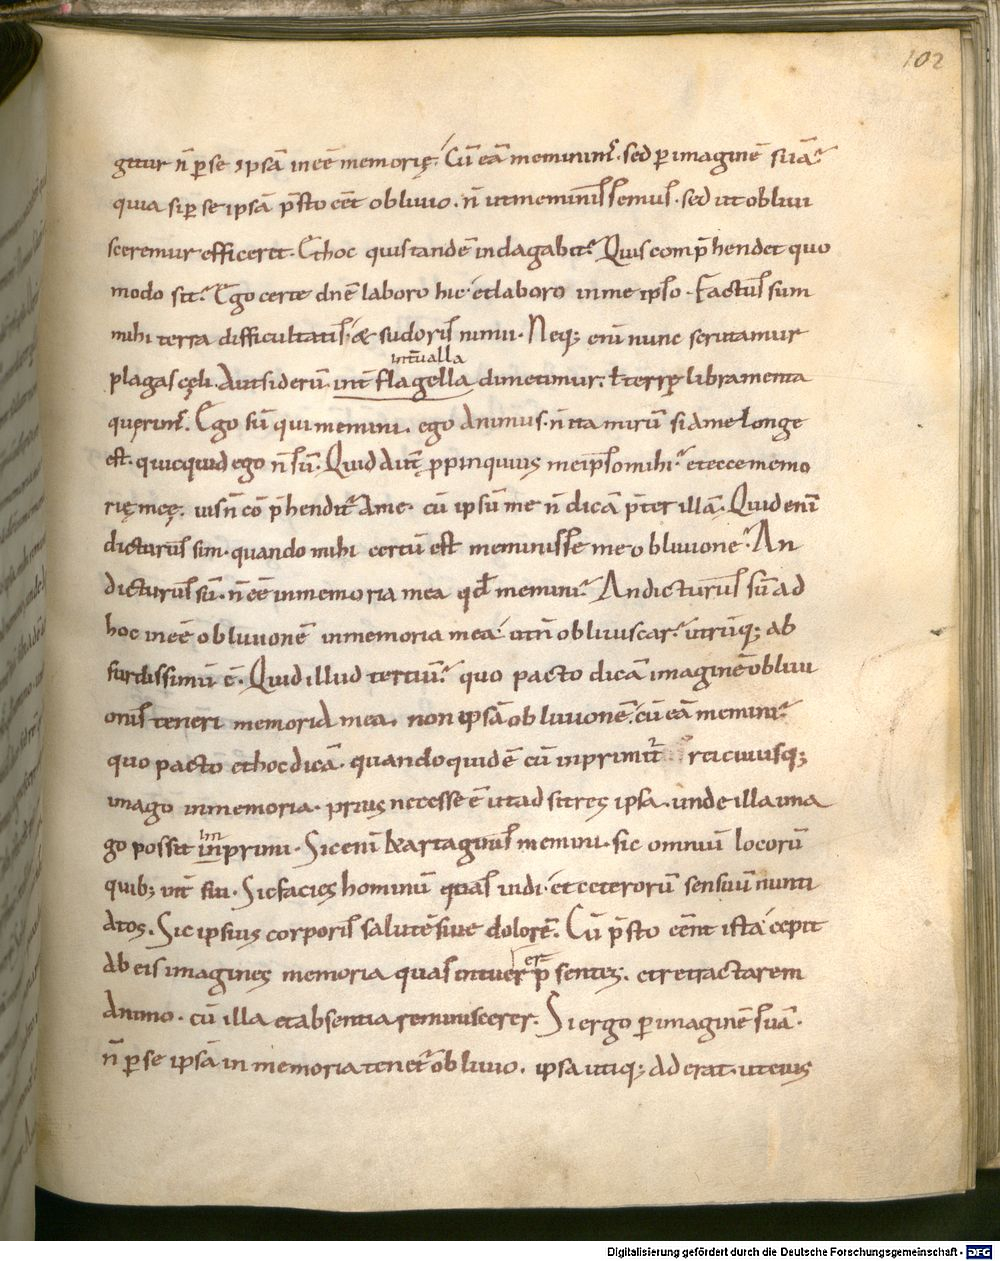 102
gitur n̄ ꝑ se ipsā ineē memorię. Cū eā meminim᷒. sed ꝑ imaginē suā?
quia si ꝑ se ipsā p̄sto eēt obliuio. n̄ ut meminissemus. sed ut obliui
sceremur efficeret. Et hoc quis tandē indagabit? Quis comp̄hendet quo
modo sit? Ego certe dn̄e laboro hic. et laboro in me ipso. Factus sum
mihi terra difficultatis. & sudoris nimii. Neq; enī nunc scrutamur
int̄ualla
plagas cęli. Aut siderū int̄ flagella dimetimur. ł terrę libramenta
querim᷒. Ego sū qui memini. ego animus. n̄ ita mirū si a me longe
est. quicquid ego n̄ sū. Quid aut̄ ꝓpinquius me ipso mihi? et ecce memo
rię meę. uis n̄ cō p̄hendit᷒ a me. cū ipsū me n̄ dicā p̄ter illā. Quid enī
dicturus sim. quando mihi certū est meminisse me obliuione? An
dicturus sū. n̄ eē in memoria mea qd̄ memini? An dicturus sū ad
hoc ineē obliuionē in memoria mea. ut n̄ obliuiscar? utrūq; ab
surdissimū ē. Quid illud tertiū? quo pacto dicā imaginē obliui
onis teneri memoria mea. non ipsā obliuionē. cū eā memini?
quo pacto et hoc dicā. quando quidē cū inprimit᷒ rei cuiusq;
imago in memoria. prius necesse ē ut adsit res ipsa. unde illa ima
im
go possit inprimi. Sic enī kartaginis memini. sic omniū locorū
quib; int̄ fui. Sic facies hominū quas uidi. et ceterorū sensuū nunti
atos. Sic ipsius corporis salutē siue dolorē. Cū p̄sto eēnt ista. cepit
er
ab eis imagines memoria quas intuerer p̄sentes. et retractarem
animo. cū illa et absentia reminiscerer. Si ergo ꝑ imaginē suā.
n̄ ꝑ se ipsā in memoria tenet᷒ obliuio. ipsa utiq; aderat. ut eius
Digitalisierung gefördert durch die Deutsche Forschungsgemeinschaft - DFG